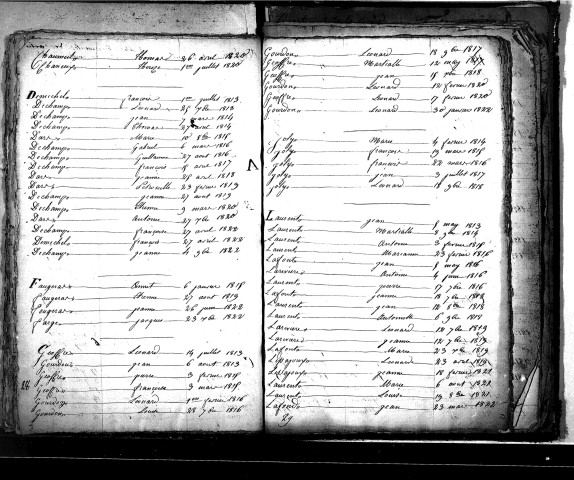 Chaumeil Thomas 26 avril 1820
Chaneux 1er juillet 1820
Demichel françoise 1er juillet 1813
Dechamp Leonard 25 7bre 1813
Dechamp jean 7 mars 1814
Dechamp Thomas 27 avril 1814
Dars Marie 10 8bre 1815
Dechamp Gabriel 6 mars 1816
Dechamp Guillaume 27 aout 1816
Dechamp françois 8 avril 1817
Dars jeanne 28 avril 1818
Dars Petronille 23 fevrier 1819
Dechamp jeanne 27 aout 1819
Dechamp Etienne 9 mars 1820
Dars Antoine 27 7bre 1820
Dechamp françoise 27 avril 1822
Demichel françois 27 avril 1822
Dechamp jeanne 4 9bre 1822
Faugeras 6 janvier 1818
Faugeras 27 aout 1819
Faugeras jeanne 26 juin 1822
Farge jacques 23 7bre 1822
Geoffre Leonard 14 juillet 1813
Gourdon jean 6 aout 1813
Geoffre pierre 3 fevrier 1815
Geoffre françoise 3 mars 1815
Gourdon Leonard 1er fevrier 1816
Gourdon Louise 28 7bre 1816
Gourdon Leonard 18 9bre 1817
Geoffre Martialle 12 may 1817
Geoffre jean 18 7bre 1818
Gourdon Leonard 12 fevrier 1820
Geoffre Leonard 17 fevrier 1820
Gourdon Leonard 30 janvier 1822
Goly Marie 4 fevrier 1814
Golye françoise 19 mars 1815
Golye francois 22 mars 1816
Golye jean 3 juillet 1817
Golye Leonard 18 9bre 1818
Laurent jean 8 may 1813
Laurent Martialle 8 9bre 1814
Laurent Antoine 3 fevrier 1815
Laurent Marianne 23 fevrier 1816
Lafont jean 8 may 1816
Lariviere Antoine 4 juin 1816
Laurent pierre 17 7bre 1816
Lafont jeanne 18 7bre 1818
Laurent jean 12 8bre 1818
Laurent Antoinette 6 9bre 1818
Lariviere Leonard 12 7bre 1819
Lariviere jeanne 12 7bre 1819
Lafont Marie 23 7bre 1819
Lepajouge Leonard 23 avril 1820
Lepajouge jeanne 18 fevrier 1821
Laurent Marie 6 aout 1821
Laurent Louise 19 8bre 1821
Lafond jean 23 mai 1822
29